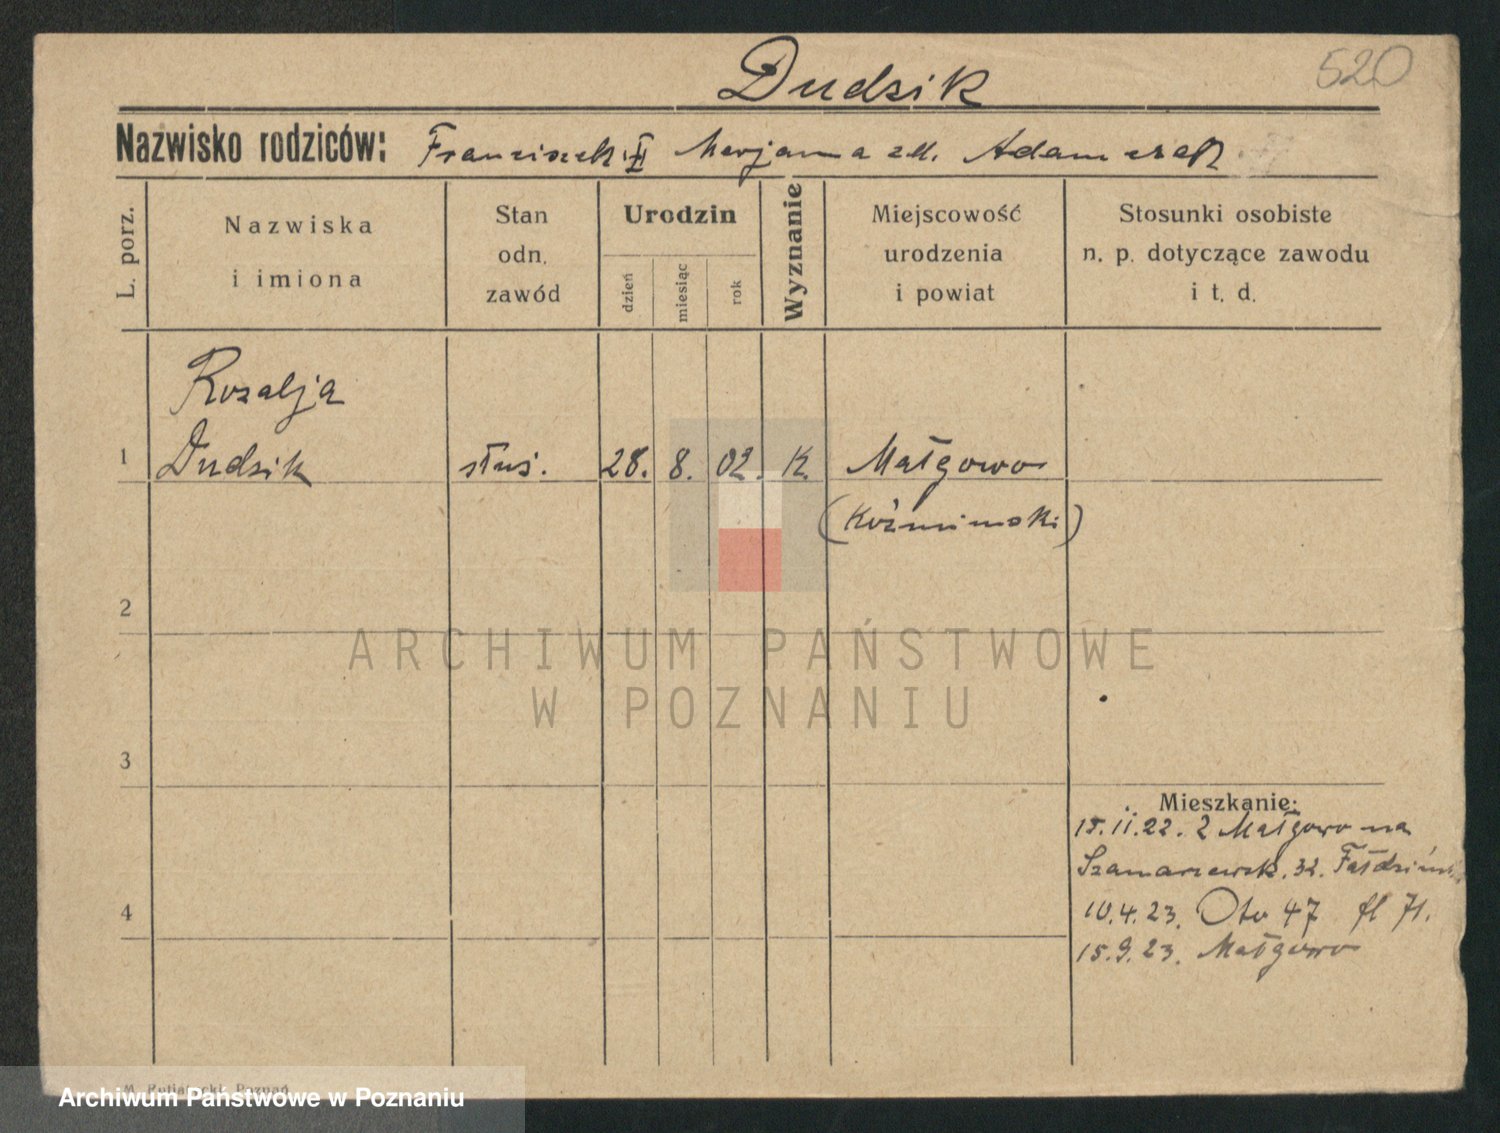 520
Dudzik
Nazwisko rodziców: Franciszek i Marjanna zd. Adamczak
L. porz.
Nazwiska i imiona
Stan odn. zawód
Urodzin
dzień miesiąc rok
Wyznanie
Miejscowość urodzenia i powiat
Stosunki osobiste n. p. dotyczące zawodu i t. d.
Rozalja
1 Dudzik służ. 28. 8. 02. K. Małgowo
(Koźmiński)
2
ARCHIWUM PAŃSTWOWE
W POZNANIU
3
Mieszkanie:
15.11.22. Z Małgowo na
Szamarzewsk. 32.
4
10.4.23. Oto 47
15.9.23. Małgowo
Poznań
Archiwum Państwowe w Poznaniu